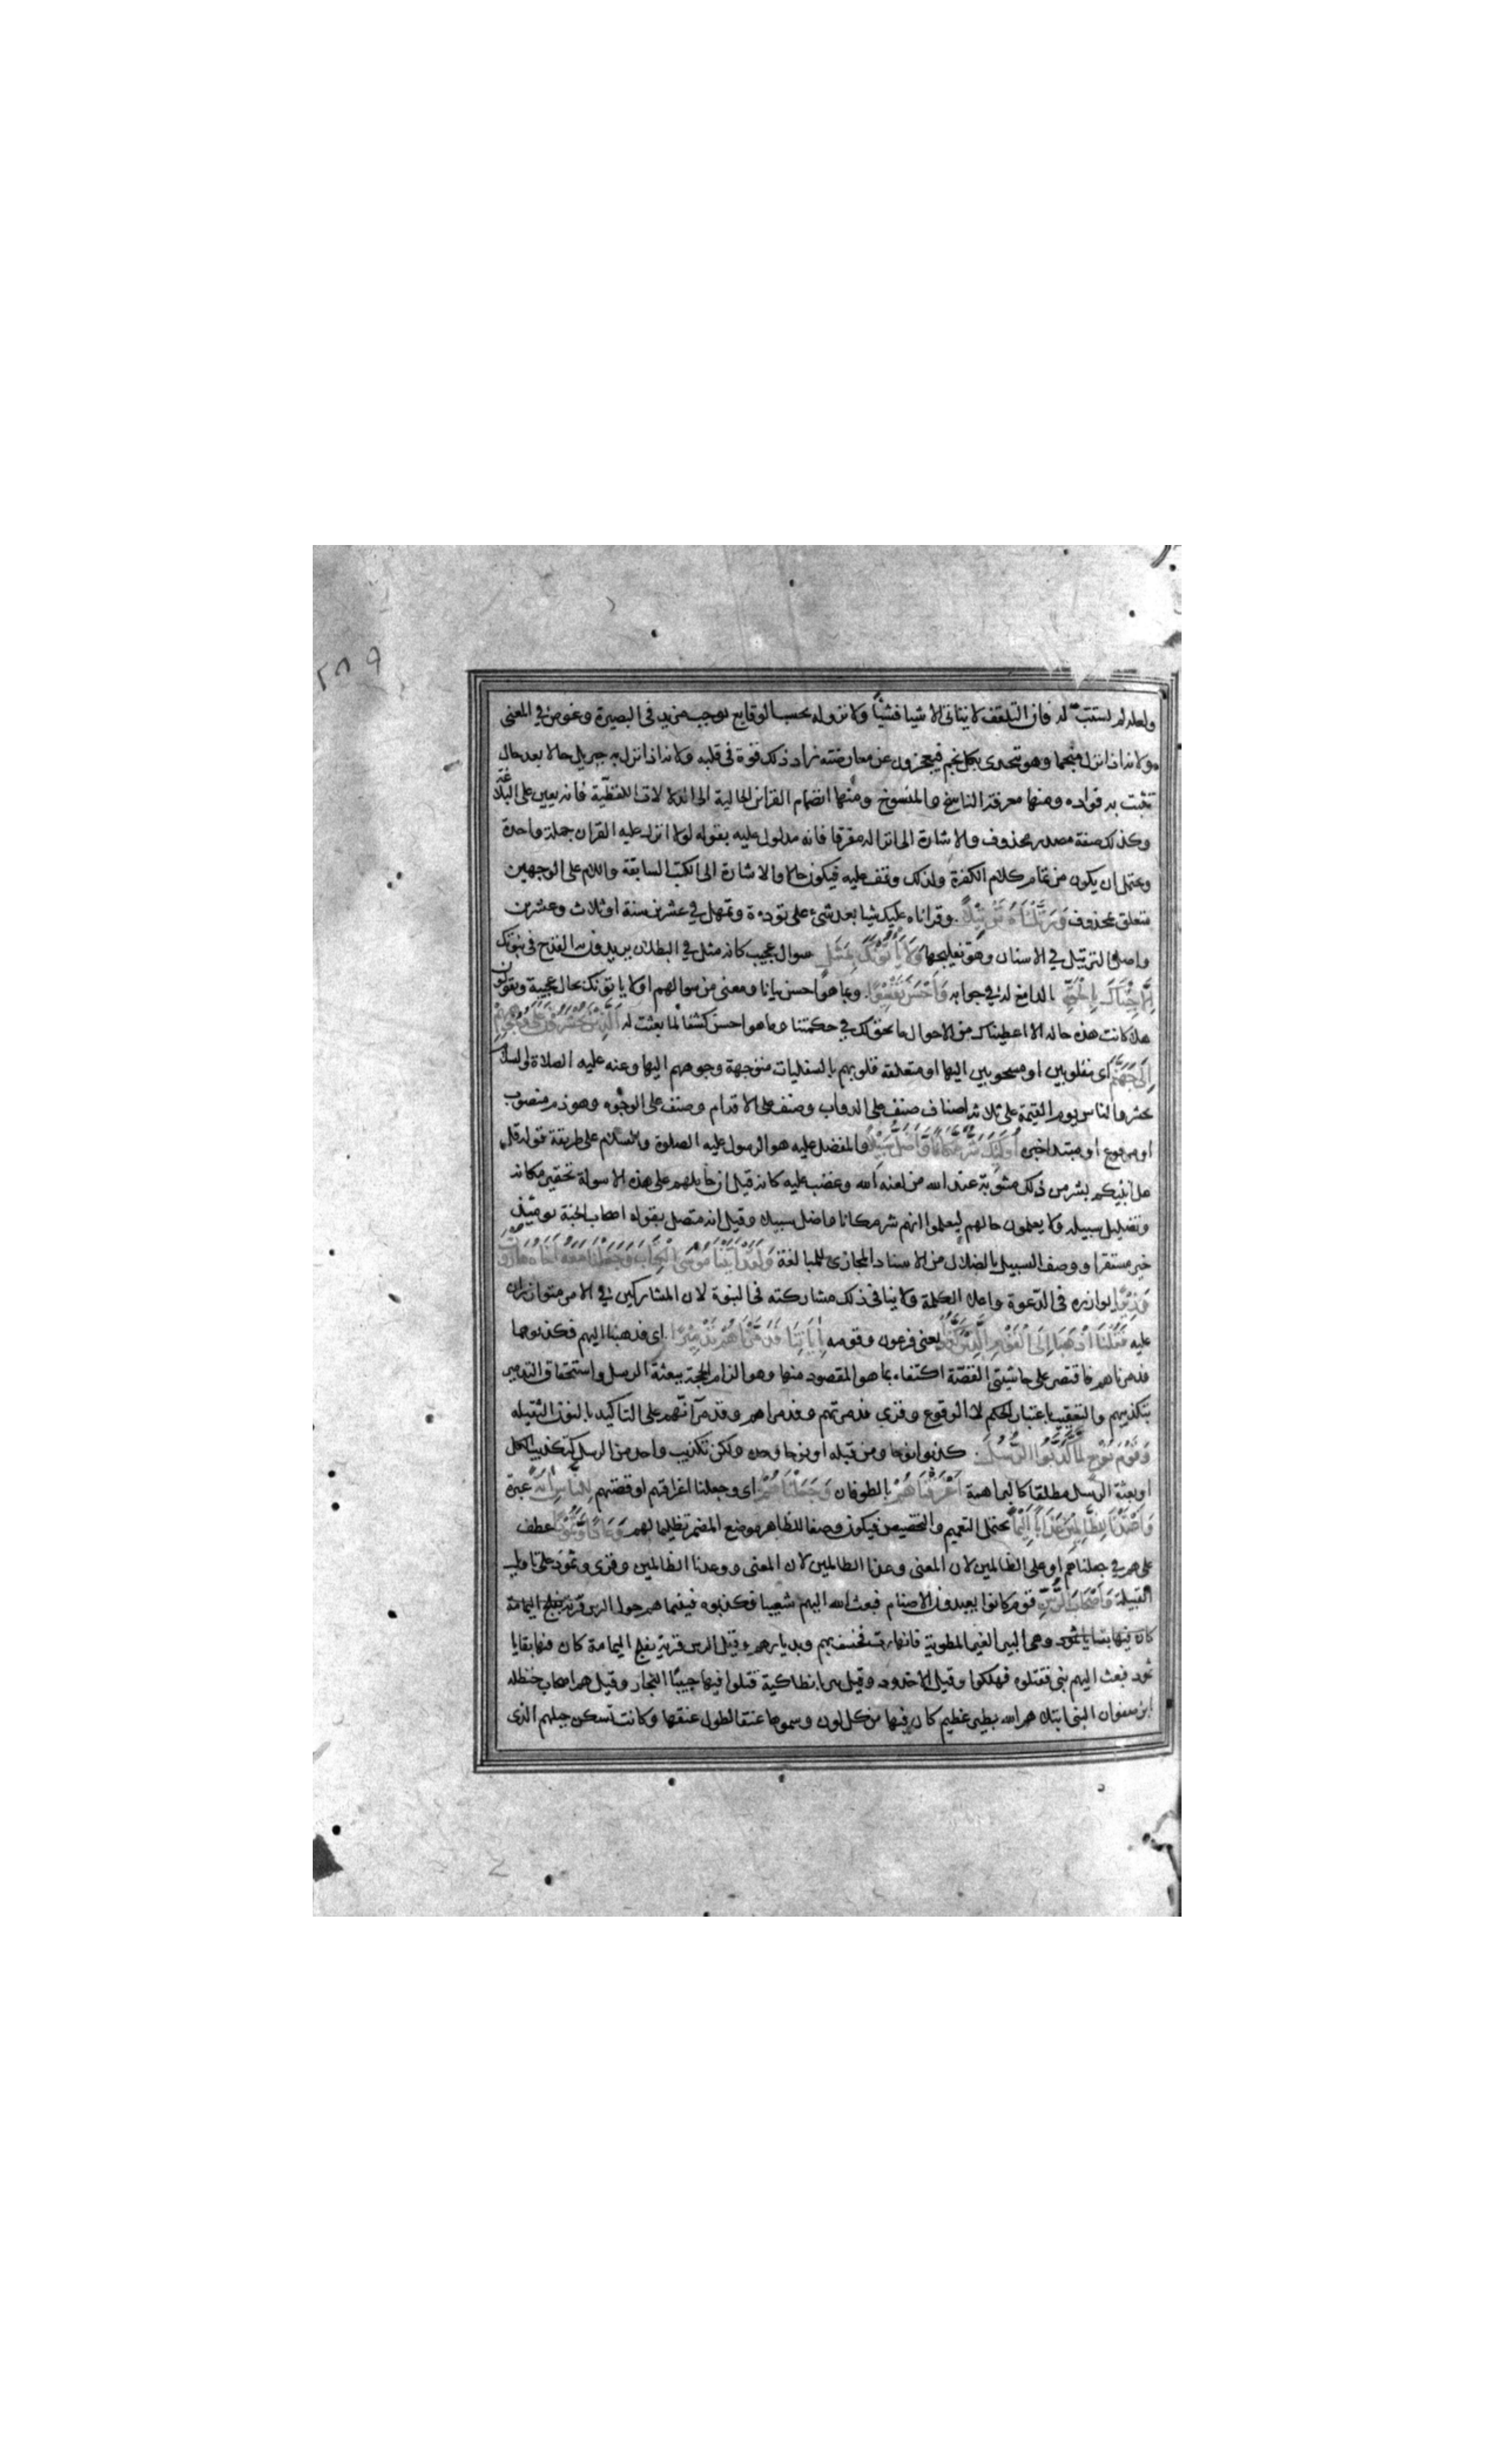 ٢٨٩
ولعله لم يستتب له فان التلقف لا يتاتى الا شيا فشيئا ولا نزوله بحسب الوقايع يوجب مزيد في البصيرة وغوص في المعنى
ولانه اذا نزل منجما وهو يتحدى بكل نجم فيعجزون عن معارضته زاد ذلك قوة في قلبه ولانه اذا نزل به جبريل حالا بعد حال
تثبت به فواده ومنها معرفة الناسخ والمنسوخ ومنها انضمام القراين الحالية الى الدلالات اللفظية فانه يعين على البلاغة
وكذلك صفة مصدر محذوف والاشارة الى انزاله مفرقا فانه مدلول عليه بقوله لولا انزل عليه القران جملة واحدة
ويحتمل ان يكون من تمام كلام الكفرة ولذلك وقف عليه فيكون حالا والاشارة الى الكتب السابقة واللام على الوجهين
متعلق بمحذوف وَرَتَّلْنَاهُ تَرْتِيلًا وقراناه عليك شيا بعد شئ على تودءة وتمهل في عشرين سنة او ثلاث وعشرين
واصل الترتيل في الاسنان وهو تفليجها وَلَا يَأْتُونَكَ بِمَثَلٍ سوال عجيب كانه مثل في البطلان يريدون به القدح في نبوتك
اِلَّا جِئْنَاكَ بِالْحَقِّ الدامغ له في جوابه وَاَحْسَنَ تَفْسِيرًا وبما هو احسن بيانا ومعنى من سوالهم او لا ياتونك بحال عجيبة ويقولون
هلا كانت هذه حاله الا اعطيناك من الاحوال ما يحق لك في حكمتنا وما هو احسن كشفا لما بعثت له الَّذِينَ يُحْشَرُونَ عَلَى وُجُوهِهِمْ
اِلَى جَهَنَّمَ اى مقلوبين او مسحوبين اليها او متعلقة قلوبهم بالسفليات متوجهة وجوههم اليها وعنه عليه الصلاة والسلام
يحشر الناس يوم القيمة على ثلاثة اصناف صنف على الدواب وصنف على الاقدام وصنف على الوجوه وهو ذم منصوب
او مرفوع او مبتدا خبره اُولَئِكَ شَرٌّ مَكَانًا وَاَضَلُّ سَبِيلًا والمفضل عليه هو الرسول عليه الصلوة والسلام على طريقة قوله قل
هل انبئكم بشر من ذلك مثوبة عند الله من لعنه الله وغضب عليه كانه قيل ان حاملهم على هذه الاسولة تحقير مكانه
وتضليل سبيله ولا يعلمون حالهم ليعلموا انهم شر مكانا واضل سبيلا وقيل انه متصل بقوله اصحاب الجنة يوميذ
خير مستقرا ووصف السبيل بالضلال من الاسناد المجازى للمبالغة وَلَقَدْ اٰتَيْنَا مُوسَى الْكِتَابَ وَجَعَلْنَا مَعَهُ اَخَاهُ هَارُونَ
وَزِيرًا يوازره في الدعوة واعلا الكلمة ولا ينافى ذلك مشاركته في النبوة لان المشاركين في الامر متوازران
عليه فَقُلْنَا اذْهَبَا اِلَى الْقَوْمِ الَّذِينَ كَذَّبُوا يعنى فرعون وقومه بِاٰيَاتِنَا فَدَمَّرْنَاهُمْ تَدْمِيرًا اى فذهبا اليهم فكذبوهما
فدمرناهم فاقتصر على حاشيتى القصة اكتفاء بما هو المقصود منها وهو الزام الحجة ببعثة الرسل واستحقاق التدمير
بتكذيبهم والتعقيب باعتبار الحكم لا الوقوع وقرى فدمرتهم وفدمراهم وفدمرآنهم على التاكيد بالنون الثقيله
وَقَوْمَ نُوحٍ لَمَّا كَذَّبُوا الرُّسُلَ كذبوا نوحا ومن قبله او نوحا وحده ولكن تكذيب واحد من الرسل كتكذيب الكل
او بعثة الرسل مطلقا كالبراهمة اَغْرَقْنَاهُمْ بالطوفان وَجَعَلْنَاهُمْ اى وجعلنا اغراقهم او قصتهم لِلنَّاسِ اٰيَةً عبرة
وَاَعْتَدْنَا لِلظَّالِمِينَ عَذَابًا اَلِيمًا يحتمل التعميم والتخصيص فيكون وضعا للظاهر موضع المضمر تظليما لهم وَعَادًا وَثَمُودَ عطف
على هم في جعلناهم او على الظالمين لان المعنى وعدنا الظالمين لان المعنى ووعدنا الظالمين وقرى وثمود على تاويل
القبيلة وَاَصْحَابَ الرَّسِّ قوم كانوا يعبدون الاصنام فبعث الله اليهم شعيبا فكذبوه فبينما هم حول الرس قرية بفلج اليمامة
كان فيها بقايا ثمود وهى البير الغير المطوية فانهارت فخسف بهم وبديارهم وقيل الرس قرية بفلج اليمامة كان فيها بقايا
ثمود فبعث اليهم نبى فقتلوه فهلكوا وقيل الاخدود وقيل بير بانطاكية قتلوا فيها حبيبا النجار وقيل هم اصحاب حنظله
ابن صفوان النبى ابتلاهم الله بطير عظيم كان فيها من كل لون وسموها عنقا لطول عنقها وكانت تسكن جبلهم الذى